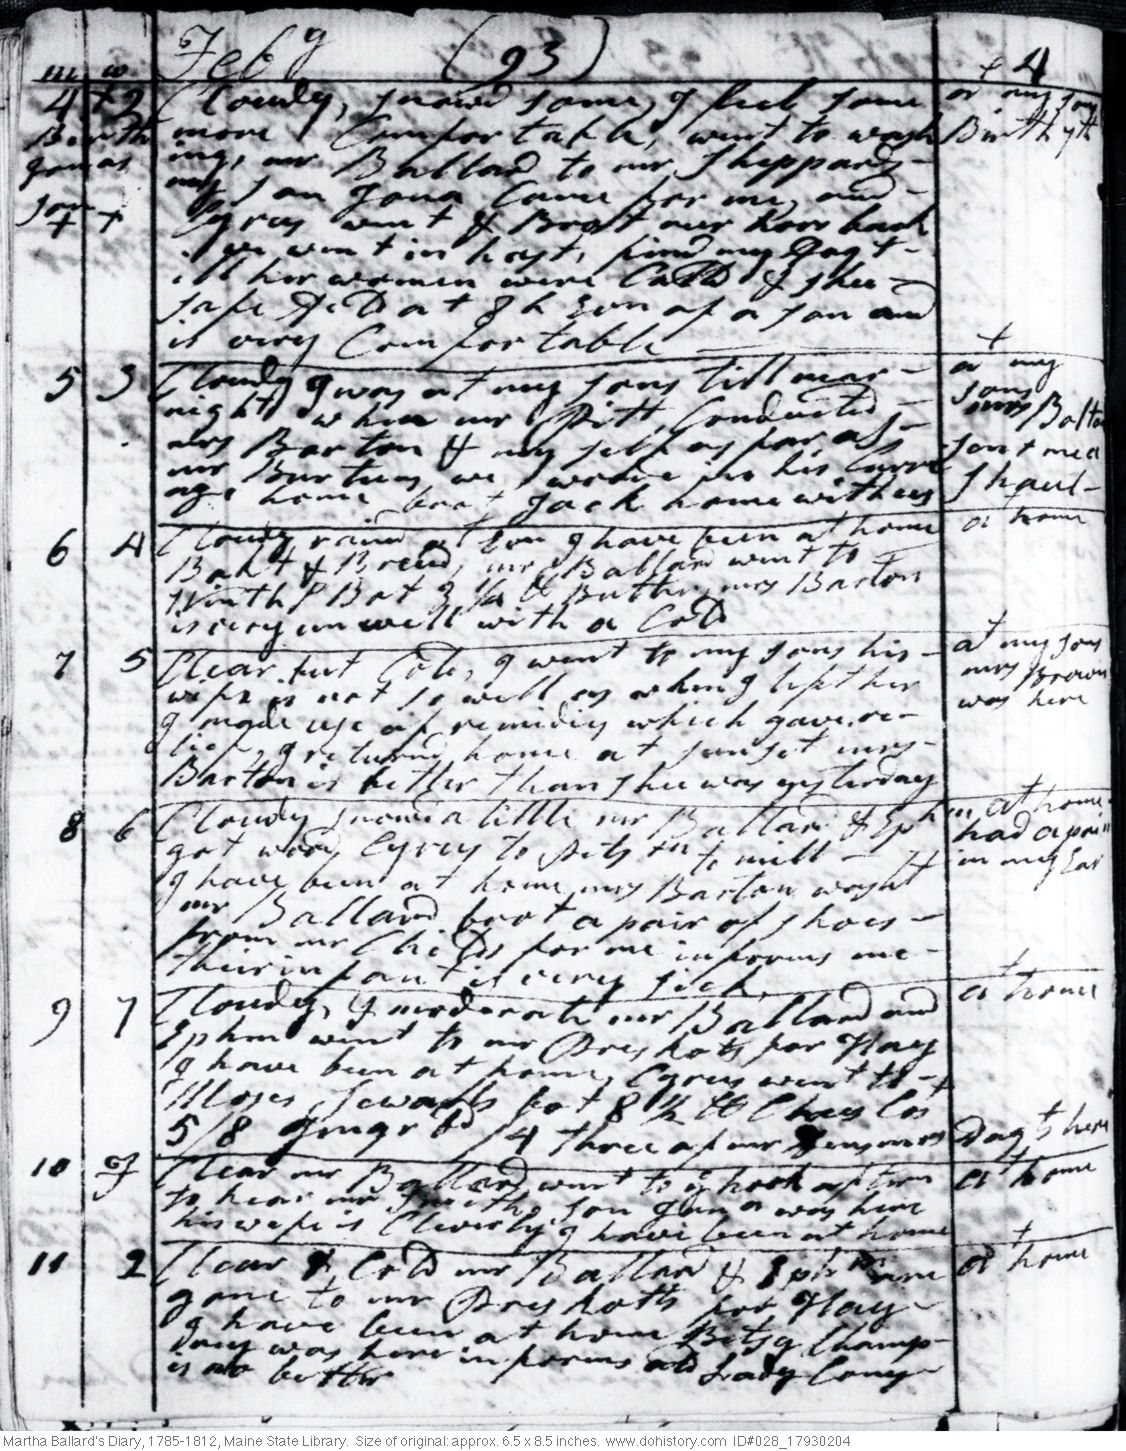 m w Feby (93) + 4
4 +2 Cloudy, snowd some, I feel some at my sons
Birth more Comfortable, went to wash Birth 7th
Jonas ing, mr Ballard to mr Sheppards
son my son Jona Came for me, and
+ + Cyrus went & Brot our hors back
we went in hast, find my Dagt
ill her women were Calld & shee
safe at 8 h Evn of a son and
is very Comfortable +
5 3 Cloudy I was at my sons till near at my
night when mr Pitt Conducted sons
mrs Barton & my self as far as mrs Barton
mr Burtuns we in his Carri sent me a
age home Jack home with us Shaul
6 4 Cloudy raind at Evn I have been at home at home
Bakt & Breud, mr Ballard went to
Winthp Bot 3 1/2 lb Buttr mrs Barton
is very un well with a Cold
7 5 Clear but Cold, I went to my sons his at my sons
wife is not so well as when I left her mrs Brown
I made use of remidies which gave re was here
lief, I returnd home at sunset mrs
Barton is better than shee was yesterday
8 6 Cloudy snowd a little mr Ballard & Ephm at home
got wood, Cyrus to Pits to mill had a pain
I have been at home mrs Barton washt in my Ear
mr Ballard brot a pair of shoes
from mr Childs for me informs me
their infant is very sick +
9 7 Cloudy, & moderate mr Ballard and at home
Ephm went to mr Preskots for Hay
I have been at home, Cyrus went to +
Moses Sewalls bot 8 1/2 lb Chees Cos
5/8 Gingr 6d /4 three of mr Dagts here
10 Clear mr Ballard went to hook aftern at home
to hear mr Smith, son Jona was here
his wife is Cleverly I have been at home +
11 2 Clear & Cold mr Ballard & Ephm are at home
gone to mr Preskotts for Hay
I have been at home Betsy Champ
ney was here informs old Lady Cony
is no better
Martha Ballard's Diary, 1785-1812, Maine State Library. Size of original: approx. 6.5 x 8.5 inches. www.dohistory.com ID#028_17930204